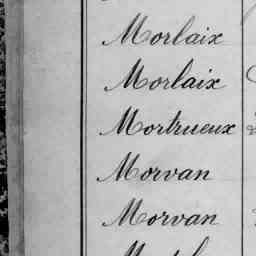 Morlaix
Morlaix
Mortrueux
Morvan
Morvan